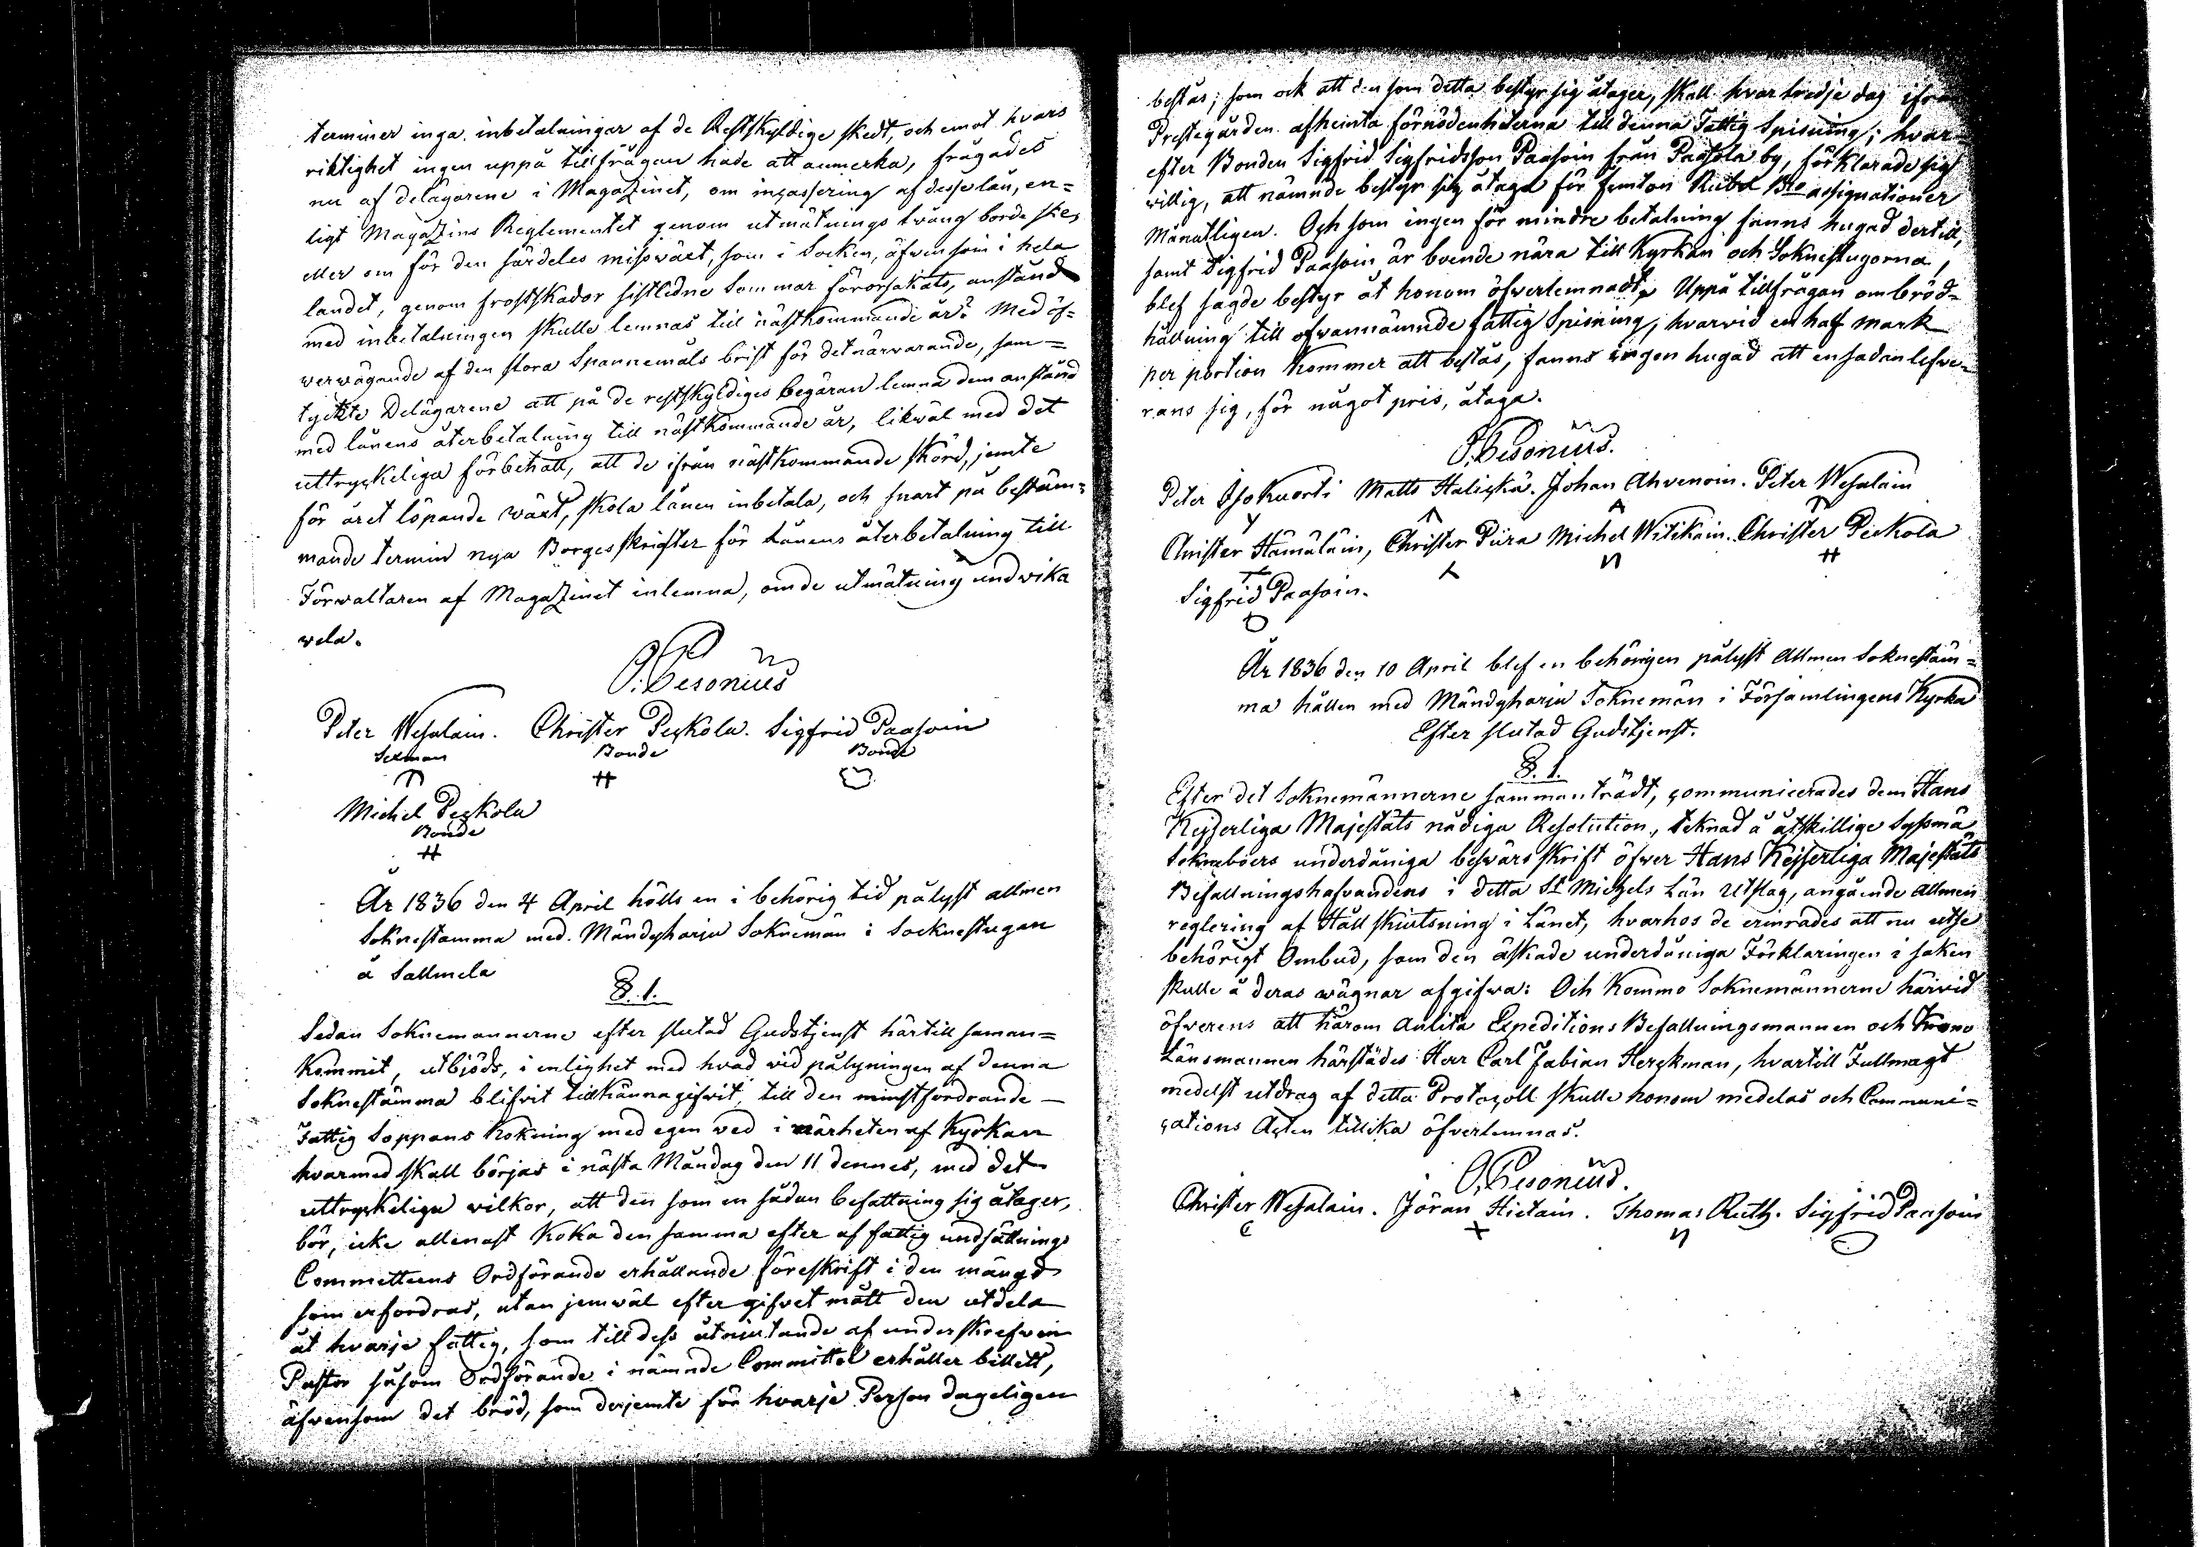 terminer inga inbetalningar af de Restskyldige skedt, och emot hvars
riktighet ingen uppå tillfrågan hade att anmerka, frågades
nu af delägarene i Magazinet, om incassering af desse lån, en=
ligt Magazins Reglementet genom utmätnings tvång borde ske,
eller om för den särdeles missväxt, som i Socken, äfvensom i hela
landet, genom frostskador sistledne Sommar förorsakats, anstånd
med inbetalningen skulle lemnas till nästkommande år? Med öf=
verwägande af den stora Spannemåls brist för det närvarande, sam=
tyckte Delägarene att på de restskyldiges begäran lemna dem anstånd
med lånens återbetalning till nästkommande år, likwäl med det
uttryckeliga förbehåll, att de ifrån nästkommande skörd, jemte
för året löpande wäxt, skola lånen inbetala, och snart på bestäm=
mande termin nya Borgesskrifter för Lånens återbetalning till
Förwaltaren af Magazinet inlemna, om de utmätning undwika
wela.
P. Pesonius
Peter Wesalain. Christer Peckola. Sigfrid Paasoin
Sexman Bonde Bonde
Michel Peckola
Bonde
År 1836 den 4 April hölls en i behörig tid pålyst allmen
Soknestamma med Mändyharju Soknemän i Socknestugan
å Sallmela
§. 1.
Sedan Soknemannerne efter slutad Gudstjenst härtill saman=
kommit, utbjöds, i enlighet med hvad vid pålysningen af denna
Soknestämma blifvit tillkännagifvit, till den minstfordrande
Fattig Soppans kokning med egen ved i närheten af Kyrkan
hvarmed skall börjas i nästa Måndag den 11 dennes, med det
uttryckeliga wilkor, att den som en sådan befattning sig åtager,
bör, icke allenast koka den samma efter af fattig undsättnings
Committeens Ordförande erhållande föreskrift i den mängd
som erfordras, utan jemwäl efter gifvet mått den utdela
åt hvarje fattig, som till dess åtnjutande af underskrefwen
Pastor såsom Ordförande i nämnde Committee erhåller billett,
äfvensom det bröd, som derjemte för hvarje Person dageligen
bestås; som ock att den som detta bestyr sig åtager, skall hvar tredje dag ifrån
Prestegården afhemta förnödenheterna till denna Fattig Spisning; hvar=
efter Bonden Sigfrid Sigfridsson Paasoin från Paasola by, förklarade sig
willig, att nämnde bestyr sig åtaga för femton Rubel Bco assignationer
Månatligen. Och som ingen för mindre betalning fanns hugad dertill,
samt Sigfrid Paasoin är boende nära till Kyrkan och Soknestugorna,
blef sagde bestyr åt honom öfwerlemnadt. Uppå tillfrågan om bröd=
hållning till ofvannämnde fattig Spisning, hvarvid en half mark
per portion kommer att bestås, fanns ingen hugad att en sadan lefve=
rans sig, för något pris, åtaga.
P. Pesonius.
Peter Isokuorti Matts Halickä. Johan Ahvenoin. Peter Wesalain
Christer Hämäläin, Christer Piira Michel Witikain. Christer Peckola
Sigfrid Paasoin.
År 1836 den 10 April blef en behörigen pålyst Allmen Soknestäm=
ma hållen med Mändyharju Soknemän i Församlingens Kyrka
Efter slutad Gudstjenst.
§. 1.
Efter det Soknemännerne sammanträdt, communicerades dem Hans
Kejserliga Majestäts nådiga Resolution, teknad å åtskillige Sysmä
Sokneboers underdåniga beswärs skrift öfwer Hans Kejserliga Majestäts
Befallningshafvandens i detta St Michels Län Utslag, angående Allmen
reglering af Håll skjutsning i Länet, hvarhos de erinrades att nu utse
behörigt Ombud, som den äskade underdåniga Förklaringen i saken
skulle å deras wägnar afgifva: Och kommo Soknemännerne härvid
öfverens att härom anlita Expeditions Befallningsmannen och Krono
Länsmannen härstädes Herr Carl Fabian Herckman, hvartill Fullmagt
medelst utdrag af detta Protocoll skulle honom medelas och Communi=
cations Acten tillika öfverlemnas.
P. Pesonius.
Christer Wesalain. Jöran Hietain. Thomas Ruth. Sigfrid Paasoin